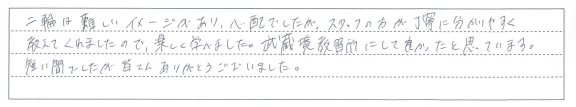 二輪は難しいイメージがあり、心配でしたが、スタッフの方が丁寧に分かりやすく
教えてくれましたので、楽しく学べました。武蔵境教習所にして良かったと思っています。
短い間でしたが皆さんありがとうございました。